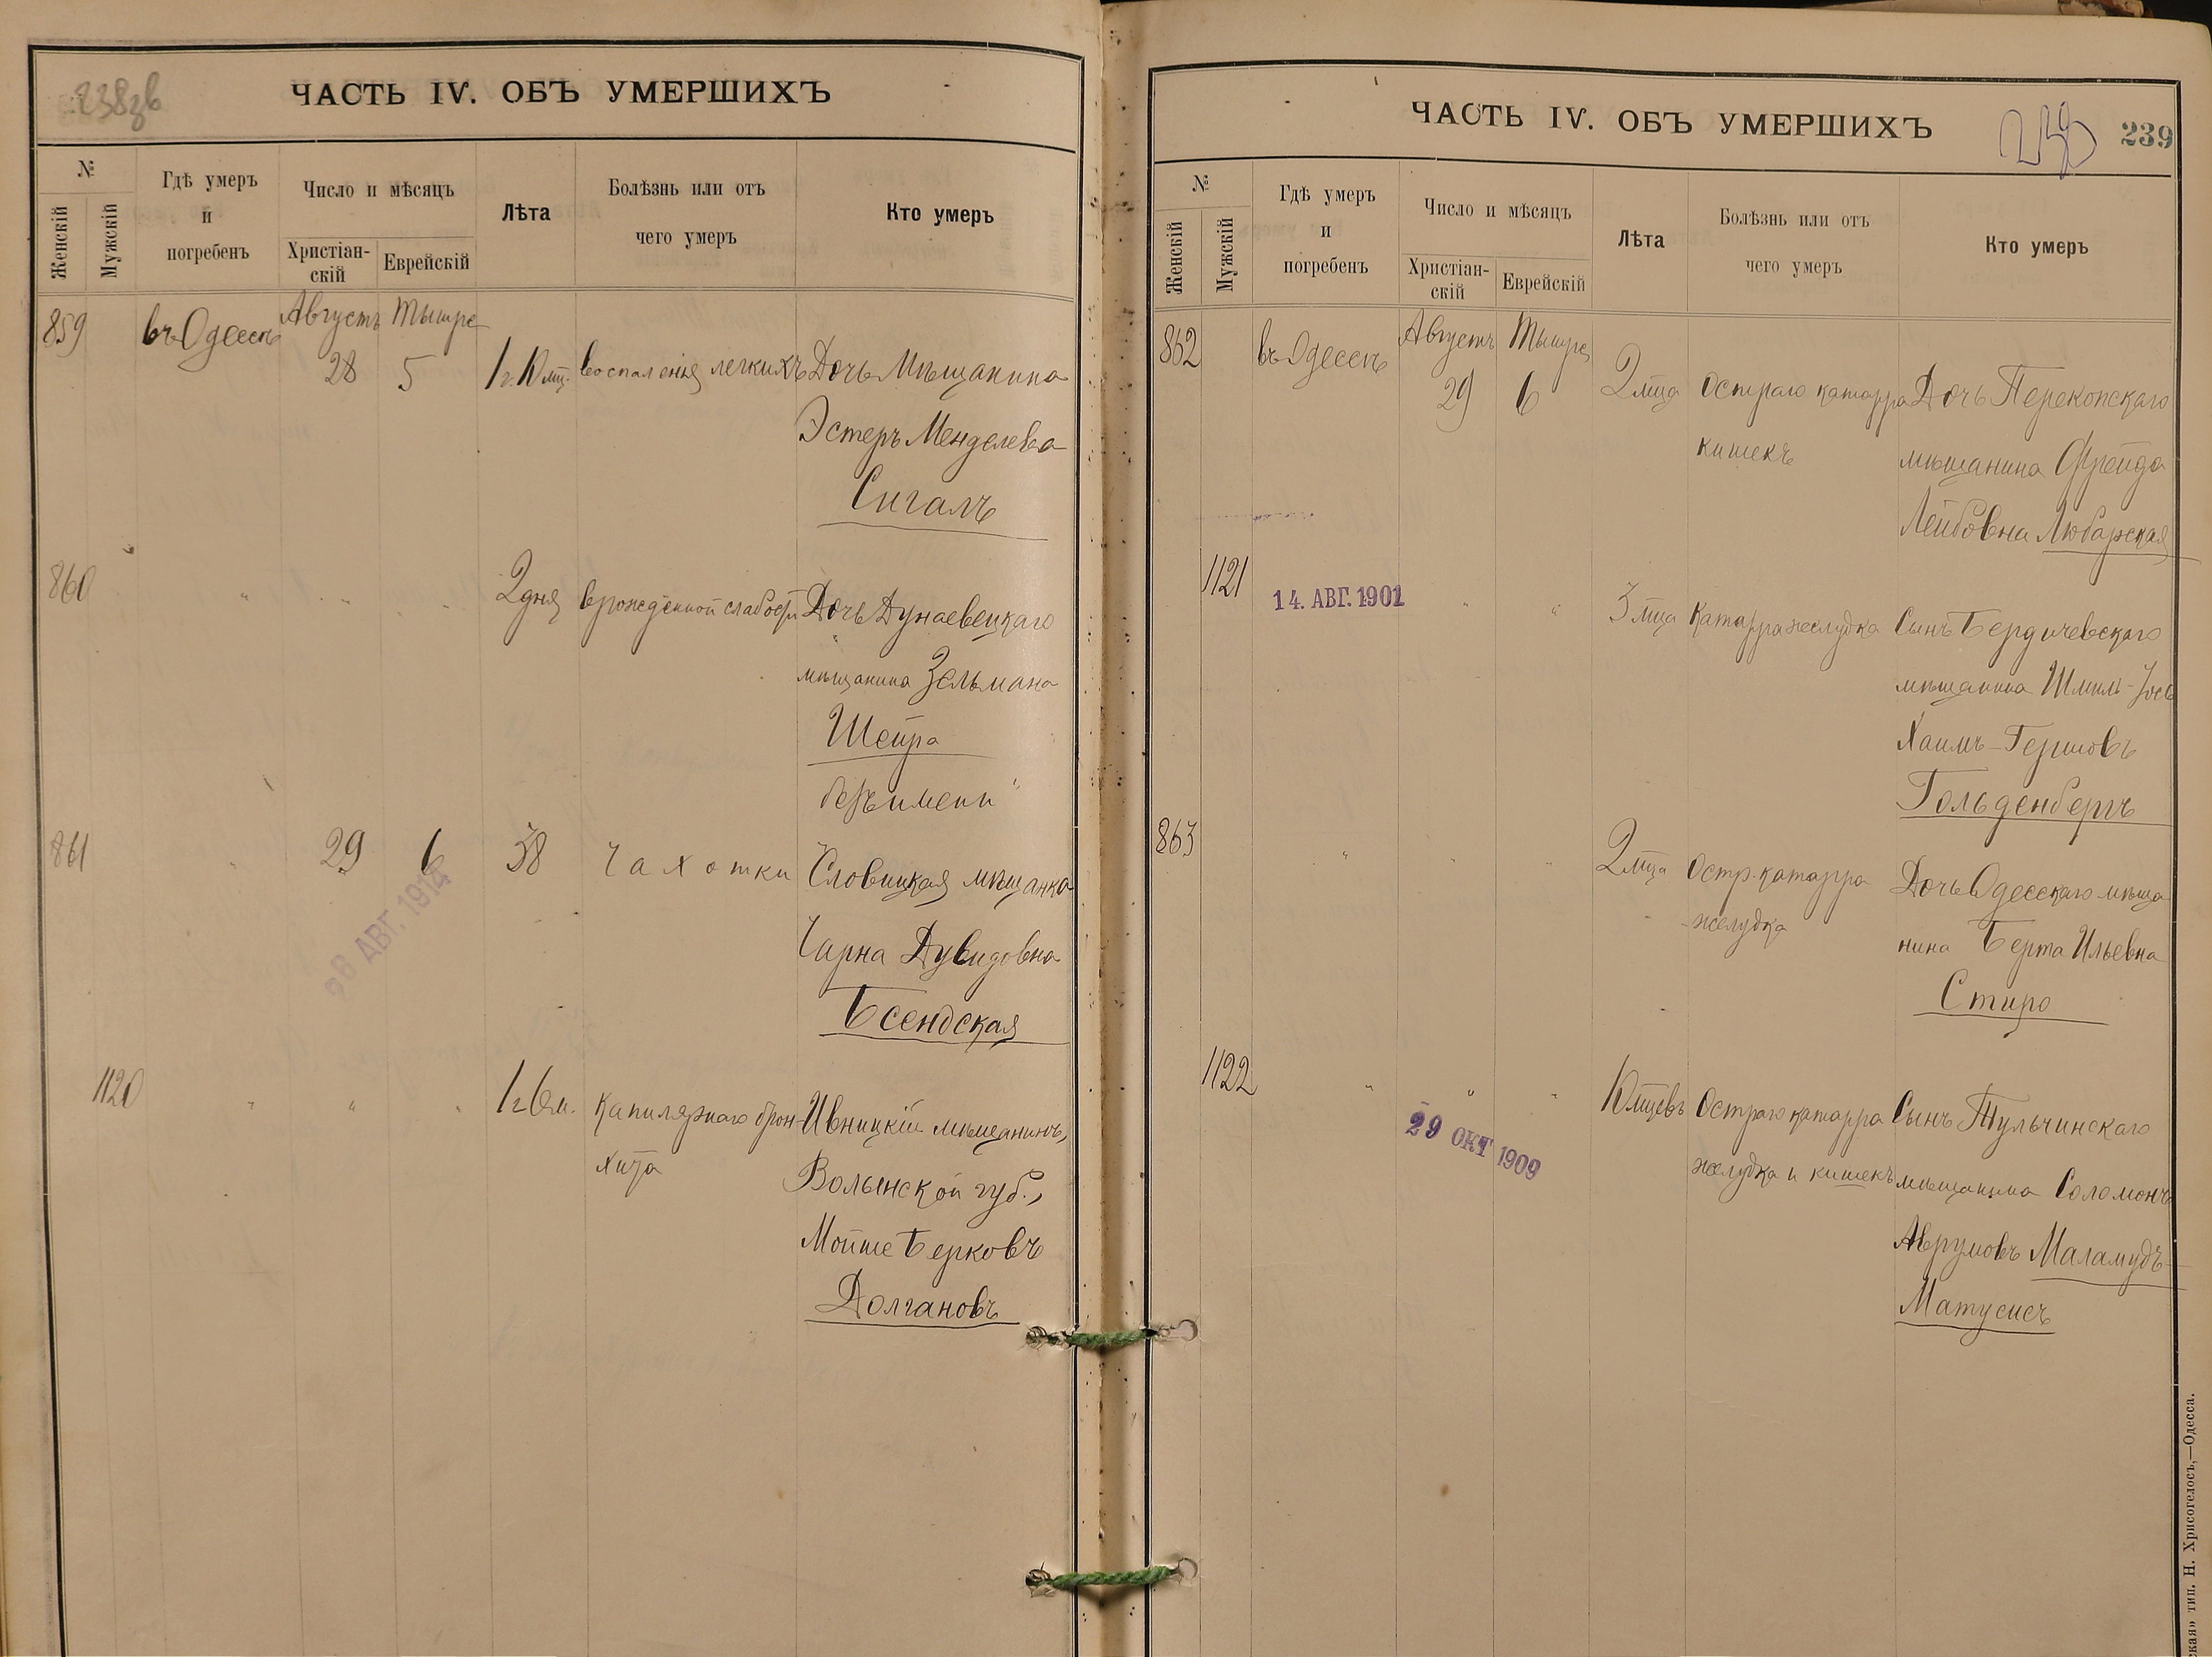 238зв
ЧАСТЬ IV. ОБЪ УМЕРШИХЪ
№
Женскій
Мужскій
Гдѣ умеръ
и
погребенъ
Число и мѣсяцъ
Христіан-
скій
Еврейскій
Лѣта
Болѣзнь или отъ
чего умеръ
Кто умеръ
859 въ Одессѣ Августъ Тышре
28 5 1 г. 10 мц. воспаленія легкихъ Дочь Мѣщанина
Эстеръ Менделева
Сигалъ
860 " " " " 2 дня врожденной слабости Дочь Дунаевецкаго
мѣщанина Зельмана
Шейра
безъ имени"
861 " 29 6 38 Чахотки Словицкая мѣщанка
Чарна Дувидовна
Бсендская
28 АВГ. 1914
1120 " " " 1 г. 6 м. Капилярнаго брон- Ивницкій мѣщанинъ,
хита Волынской губ.,
Мойше Берковъ
Долгановъ
ЧАСТЬ IV. ОБЪ УМЕРШИХЪ
239
№
Женскій
Мужскій
Гдѣ умеръ
и
погребенъ
Число и мѣсяцъ
Христіан-
скій
Еврейскій
Лѣта
Болѣзнь или отъ
чего умеръ
Кто умеръ
862 въ Одессѣ Августъ Тышре
29 6 2 мца Остраго катарра Дочь Перекопскаго
кишекъ мѣщанина Фрейда
Лейбовна Любарская
1121 14. АВГ. 1901 " " 3 мца Катарра желудка Сынъ Бердичевскаго
мѣщанина Шмиль-Іось
Хаимъ-Гершовъ
Гольденбергъ
863 " " " 2 мца Остр. катарра Дочь Одесскаго мѣща
желудка нина Берта Ильевна
Стиро
1122 " " " 10 мцевъ Остраго катарра Сынъ Тульчинскаго
29 ОКТ 1909
желудка и кишекъ мѣщанина Соломонъ
Аврумовъ Маламудъ-
Матусисъ
кая» тип. Н. Хрисогелосъ,—Одесса.